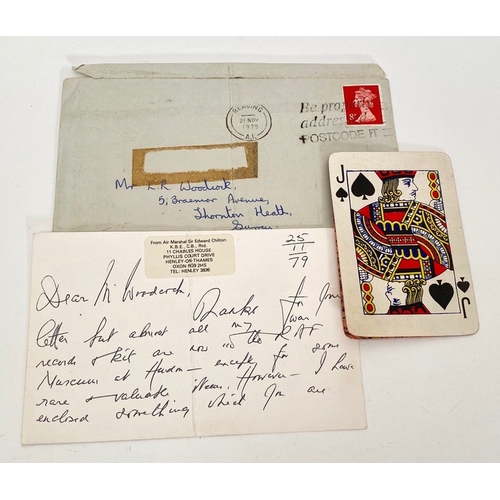 READING
27 NOV
1979
A.I.
Be prop
addres
POSTCODE IT
8P
Mr L.R Woodcock,
5, Braemar Avenue,
Thornton Heath,
Surrey
From Air Marshal Sir Edward Chilton
K.B.E., C.B., Rtd.
11 CHARLES HOUSE
PHYLLIS COURT DRIVE
HENLEY-ON-THAMES
OXON RG9 2HS
TEL: HENLEY 3836
25
11
79
Dear Mr Woodcock,
Thanks for your
letter but almost all my war
records & kit are now in the RAF
Museum at Hendon - except for some
rare & valuable items. However - I have
enclosed something which you are
J
J